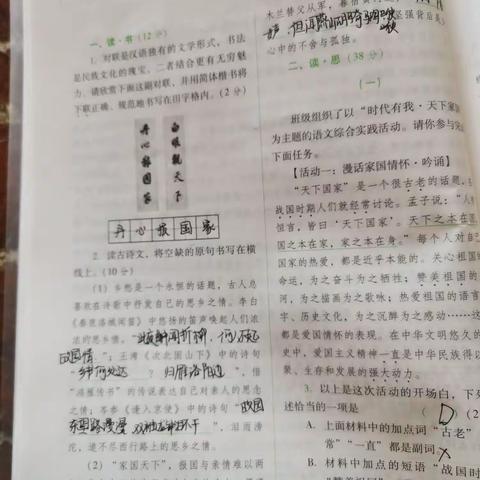 一、读·书（12分）
1. 对联是汉语独有的文学形式，书法
是民族文化的瑰宝。二者结合更有无穷魅
力。请欣赏下面这副对联，并用简体楷书将
下联正确、规范地书写在田字格内。（2分）
白眼观天下
丹心报国家
丹心报国家
2. 读古诗文，将空缺的原句书写在横
线上。（10分）
（1）乡愁是一个永恒的话题，古人总
喜欢在诗歌中抒发自己的思乡之情。李白
《春夜洛城闻笛》中悠扬的笛声唤起人们浓
浓的思乡情：“此夜曲中闻折柳，何人不起
故园情”；王湾《次北固山下》中的诗句
“乡书何处达？归雁洛阳边”，借
“鸿雁传书”的传说表达自己对亲人的思念
之情；岑参《逢入京使》中的诗句“故园
东望路漫漫，双袖龙钟泪不干”，泪雨滂
沱，道不尽西行路上的思乡之情。
（2）“家国天下”，报国与亲情难以两
木兰替父从军，
坚强背后是
心中的不舍与孤独。
二、读·思（38分）
（一）
班级组织了以“时代有我·天下家
为主题的语文综合实践活动。请你参与完
下面任务。
【活动一：漫话家国情怀·吟诵】
“天下国家”是一个很古老的话题，
战国时期人们就经常讨论。孟子说：“人
恒言，皆曰‘天下国家’。天下之本在国
国之本在家，家之本在身。”每个人对自
国家的热爱，都是近乎本能的。关心祖国
命运，为之奋斗为之牺牲；赞美祖国的
河，为之描画为之歌咏；热爱祖国的语言
字、历史文化，为之沉醉为之感动……这
都是爱国情怀的表现。在中华文明悠久的
史中，爱国主义精神一直是中华民族得以
聚、生存和发展的强大动力。
3. 以上是这次活动的开场白，下列
述恰当的一项是（D）
A. 上面材料中的加点词“古老”
常”“一直”都是副词。
B. 材料中加点的短语“战国时